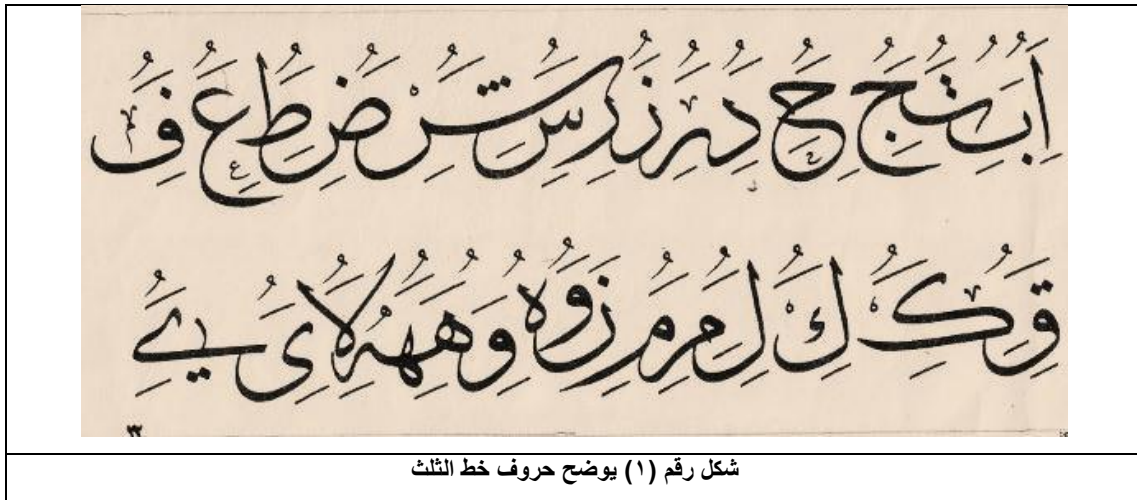 أَبُِ تَُ جَُِ حَُِ دَُِ رَُِ زَُِ رَ سَُِ شَُِ ضَُِ طَُِ عَُِ فَُِ
قَُِ كَُِ كَُِ لَُِ مَُِ رَُ مَُِ زَُ وَُ ه وَُِ هَُِ هَُِ لَاُ ىَُِ ىَُِ
٢٢
شكل رقم (١) يوضح حروف خط الثلث